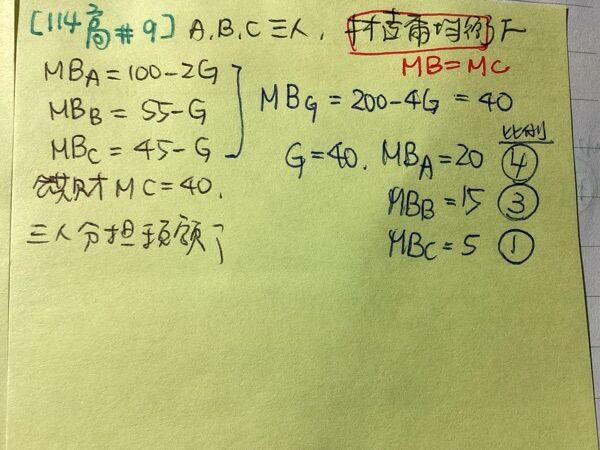 [114高#9] A,B,C三人, 林達爾均衡下
MB=MC
MBA=100-2G
MBB=55-G
MBC=45-G
MBG=200-4G=40
公共財MC=40,
G=40. MBA=20 ④
比例
MBB=15 ③
MBC=5 ①
三人分担預額?